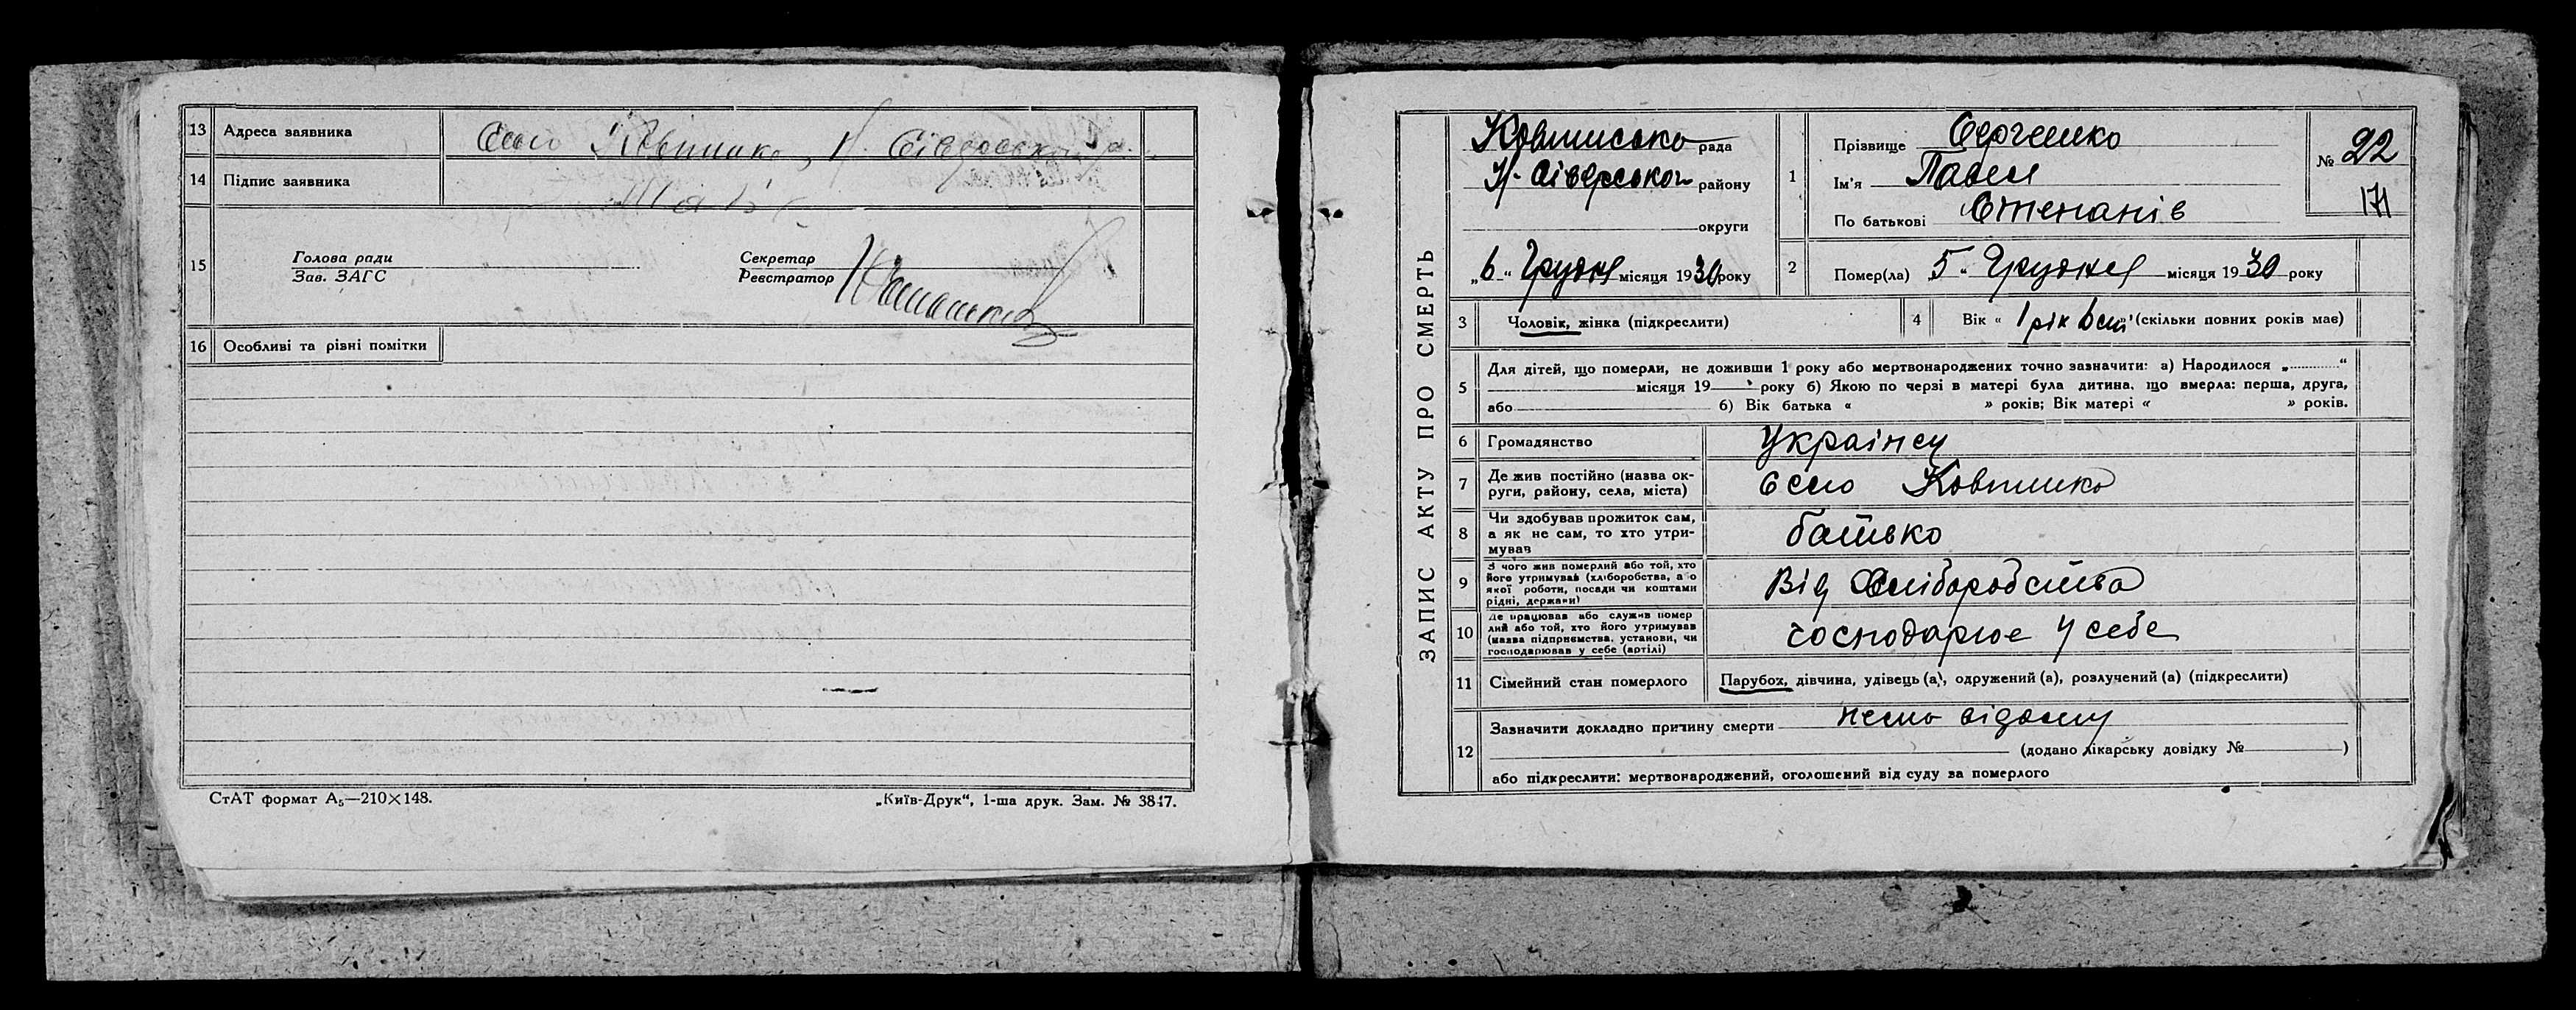 13 Адреса заявника Село Ковпинка, Н. Сіверськ.
14 Підпис заявника
15 Голова ради
Зав. ЗАГС
Секретар
Реєстратор
16 Особливі та різні помітки
СтАТ формат А₅—210×148.
„Київ-Друк“, 1-ша друк. Зам. № 3847.
ЗАПИС АКТУ ПРО СМЕРТЬ
рада
Н-Сіверського району
округи
„6“ Грудня місяця 1930 року
1 Прізвище Сергієнко
Ім'я Павел
По батькові Степанів
№ 22
171
2 Помер(ла) 5 „ Грудня місяця 1930 року
3 Чоловік, жінка (підкреслити)
4 Вік « 1 рік 6 » (скільки повних років має)
5 Для дітей, що померли, не доживши 1 року або мертвонароджених точно зазначити: а) Народилося „............“
місяця 19 року б) Якою по черзі в матері була дитина, що вмерла: перша, друга,
або б) Вік батька « » років; Вік матері « » років.
6 Громадянство Українец
7 Де жив постійно (назва ок-
руги, району, села, міста) село Ковпинка
8 Чи здобував прожиток сам,
а як не сам, то хто утри-
мував батько
9 З чого жив померлий або той, хто
його утримував (хліборобства, або
якої роботи, посади чи коштами
рідні, держави) Від Хліборобства
10 Де працював або служив помер
лий або той, хто його утримував
(назва підприємства, установи, чи
господарював у себе (артілі) господарює у себе
11 Сімейний стан померлого Парубок, дівчина, удівець (а), одружений (а), розлучений (а) (підкреслити)
12 Зазначити докладно причину смерти відому
(додано лікарську довідку № )
або підкреслити: мертвонароджений, оголошений від суду за померлого